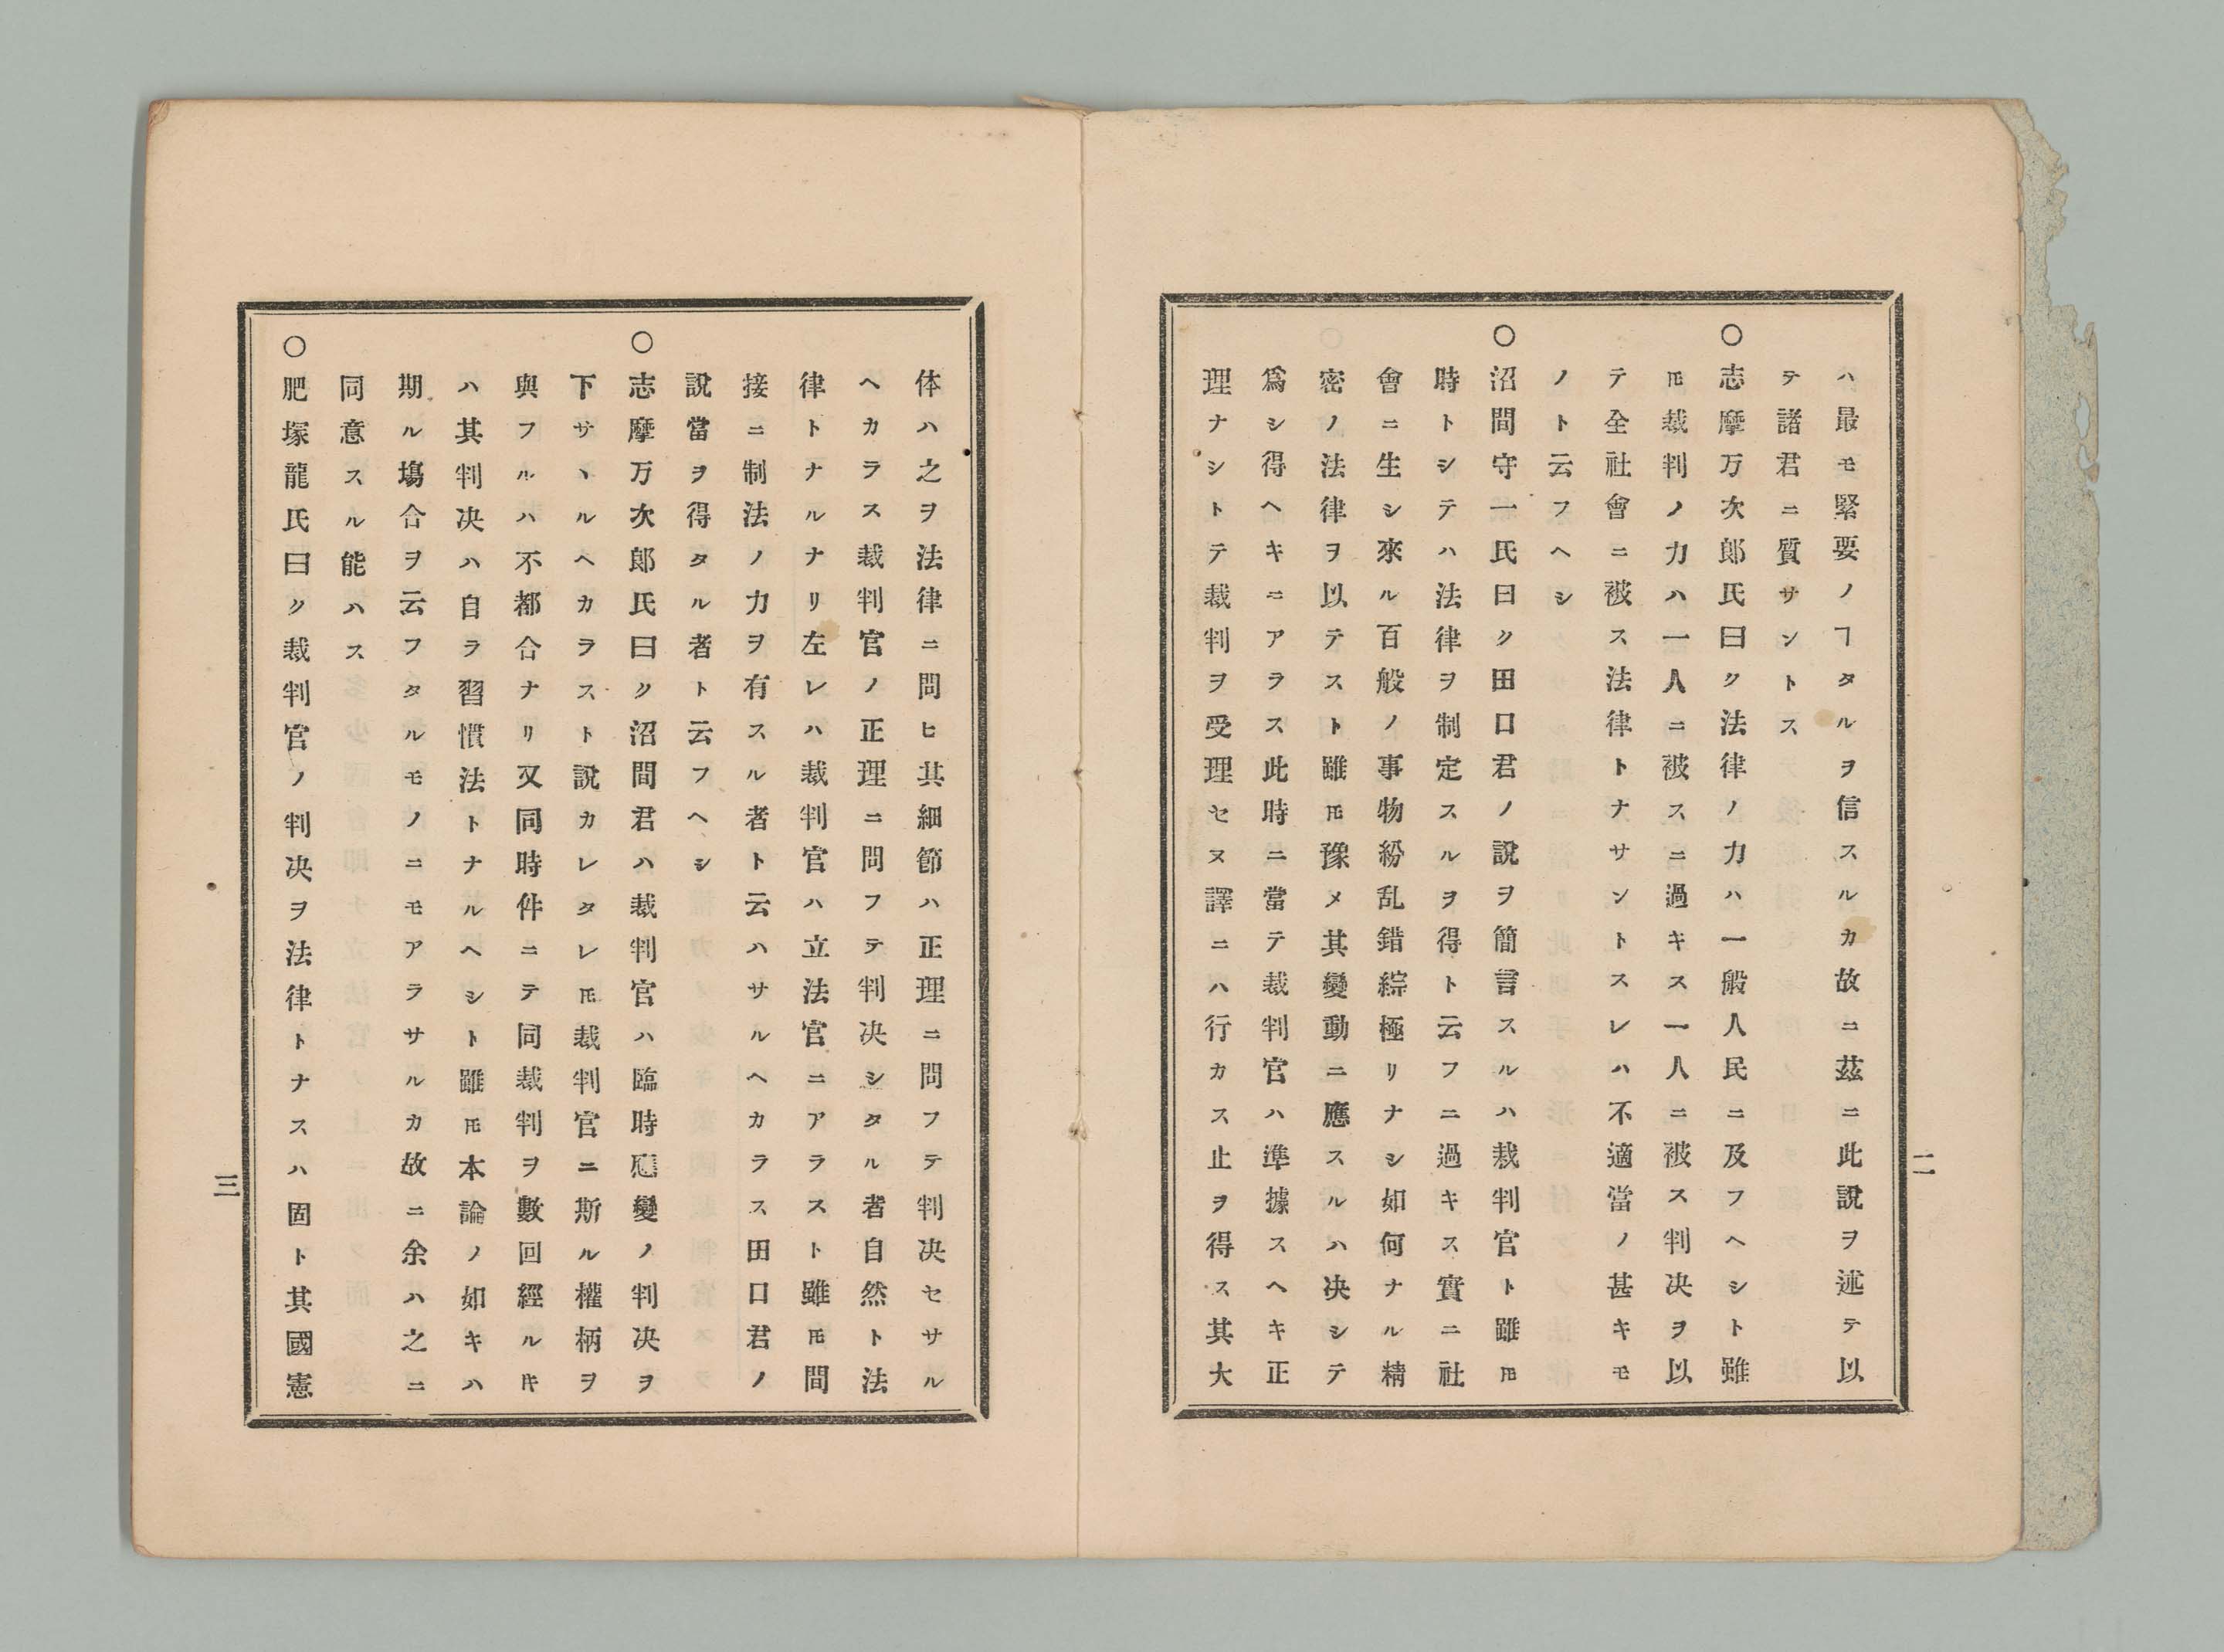 ハ最モ緊要ノヿタルヲ信スルカ故ニ茲ニ此說ヲ述テ以
テ諸君ニ質サントス
○志摩万次郎氏曰ク法律ノ力ハ一般人民ニ及フヘシト雖
𪜈裁判ノ力ハ一人ニ被スニ過キス一人ニ被ス判决ヲ以
テ全社會ニ被ス法律トナサントスレハ不適當ノ甚キモ
ノト云フヘシ
○沼間守一氏曰ク田口君ノ說ヲ簡言スルハ裁判官ト雖𪜈
時トシテハ法律ヲ制定スルヲ得ト云フニ過キス實ニ社
會ニ生シ來ル百般ノ事物紛乱錯綜極リナシ如何ナル精
密ノ法律ヲ以テスト雖𪜈豫メ其變動ニ應スルハ决シテ
爲シ得ヘキニアラス此時ニ當テ裁判官ハ準據スヘキ正
理ナシトテ裁判ヲ受理セヌ譯ニハ行カス止ヲ得ス其大
二
体ハ之ヲ法律ニ問ヒ其細節ハ正理ニ問フテ判决セサル
ヘカラス裁判官ノ正理ニ問フテ判决シタル者自然ト法
律トナルナリ左レハ裁判官ハ立法官ニアラスト雖𪜈間
接ニ制法ノ力ヲ有スル者ト云ハサルヘカラス田口君ノ
說當ヲ得タル者ト云フヘシ
○志摩万次郎氏曰ク沼間君ハ裁判官ハ臨時應變ノ判决ヲ
下サヽルヘカラスト說カレタレ𪜈裁判官ニ斯ル權柄ヲ
與フルハ不都合ナリ又同時件ニテ同裁判ヲ數回經ルキ
ハ其判决ハ自ラ習慣法トナルヘシト雖𪜈本論ノ如キハ
期ル塲合ヲ云フタルモノニモアラサルカ故ニ余ハ之ニ
同意スル能ハス
○肥塚龍氏曰ク裁判官ノ判决ヲ法律トナスハ固ト其國憲
三